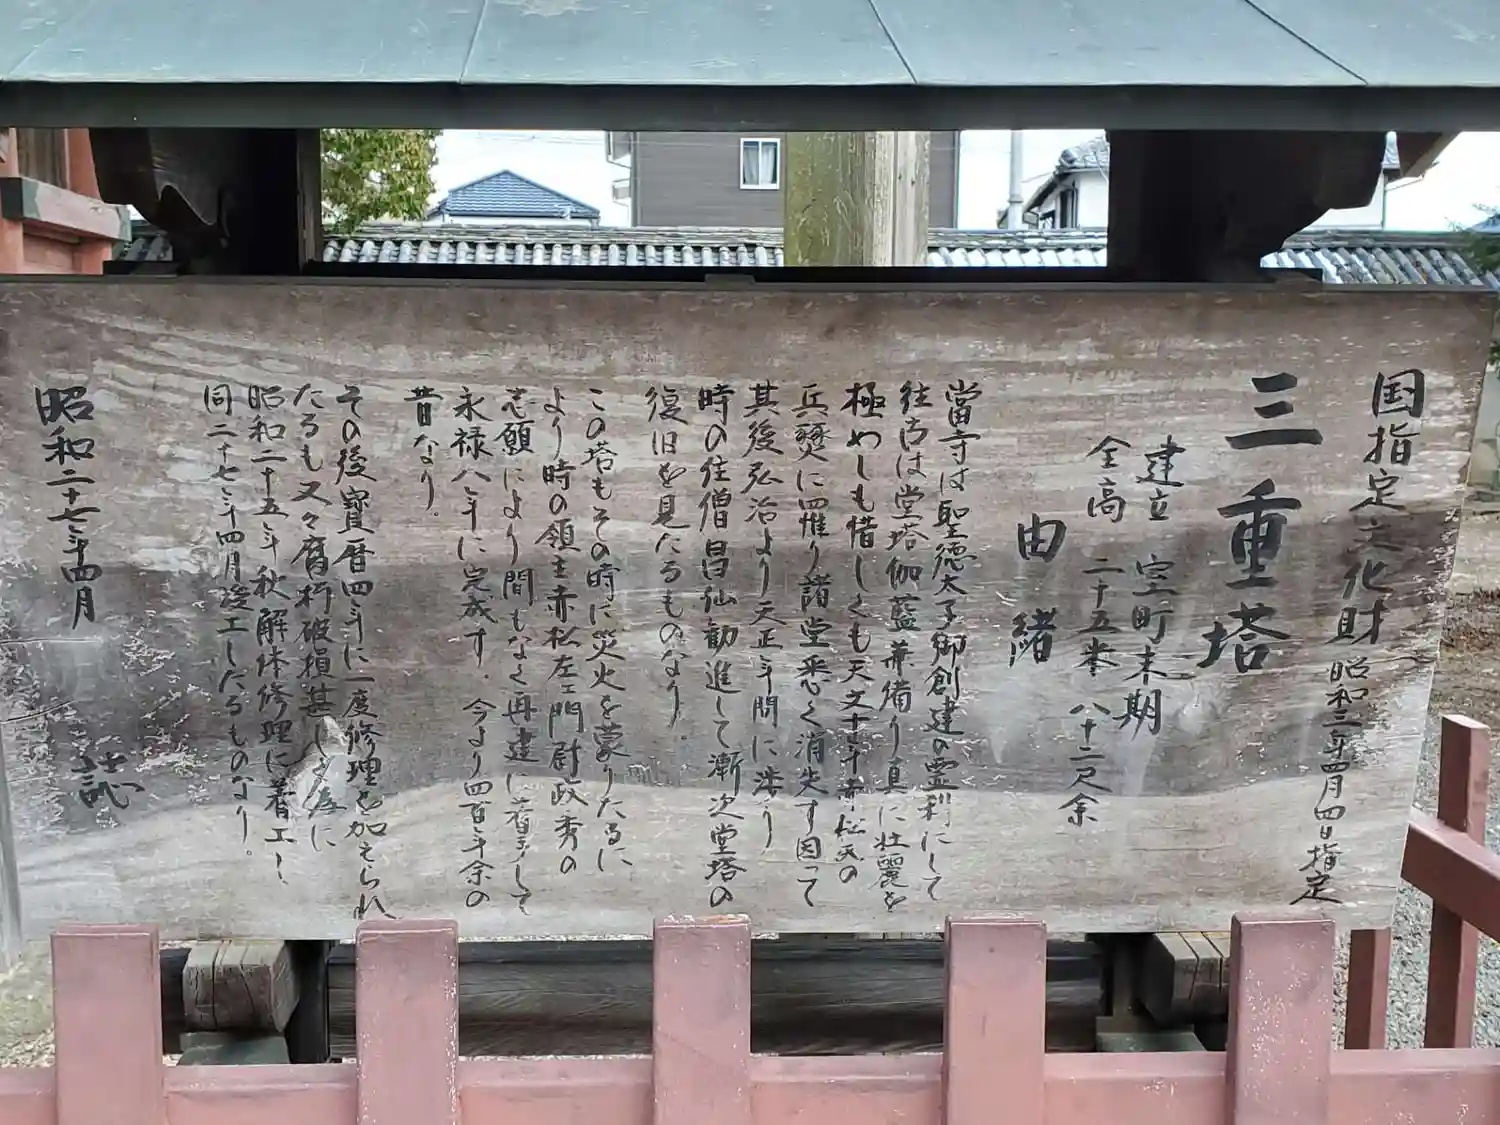 国指定文化財 昭和三年四月四日指定
三重塔
建立 室町末期
全高 二十五米 八十二尺余
由緒
當寺は聖徳太子御創建の霊刹にして
往古は堂塔伽藍兼備り真に壮麗を
極めしも惜しくも天文十年赤松氏の
兵燹に罹り諸堂悉く消失す因って
其後弘治より天正年間に渉り
時の住僧昌仙勧進して漸次堂塔の
復旧を見たるものなり。
この塔もその時に災火を蒙りたるに
より時の領主赤松左ェ門尉政秀の
志願により間もなく再建に着手して
永禄八年に完成す。今より四百年余の
昔なり。
その後寶暦四年に一度修理を加えられ
たるも又々腐朽破損甚しき為に
昭和二十五年秋解体修理に着工し
同二十七年四月竣工したるものなり。
昭和二十七年四月 誌